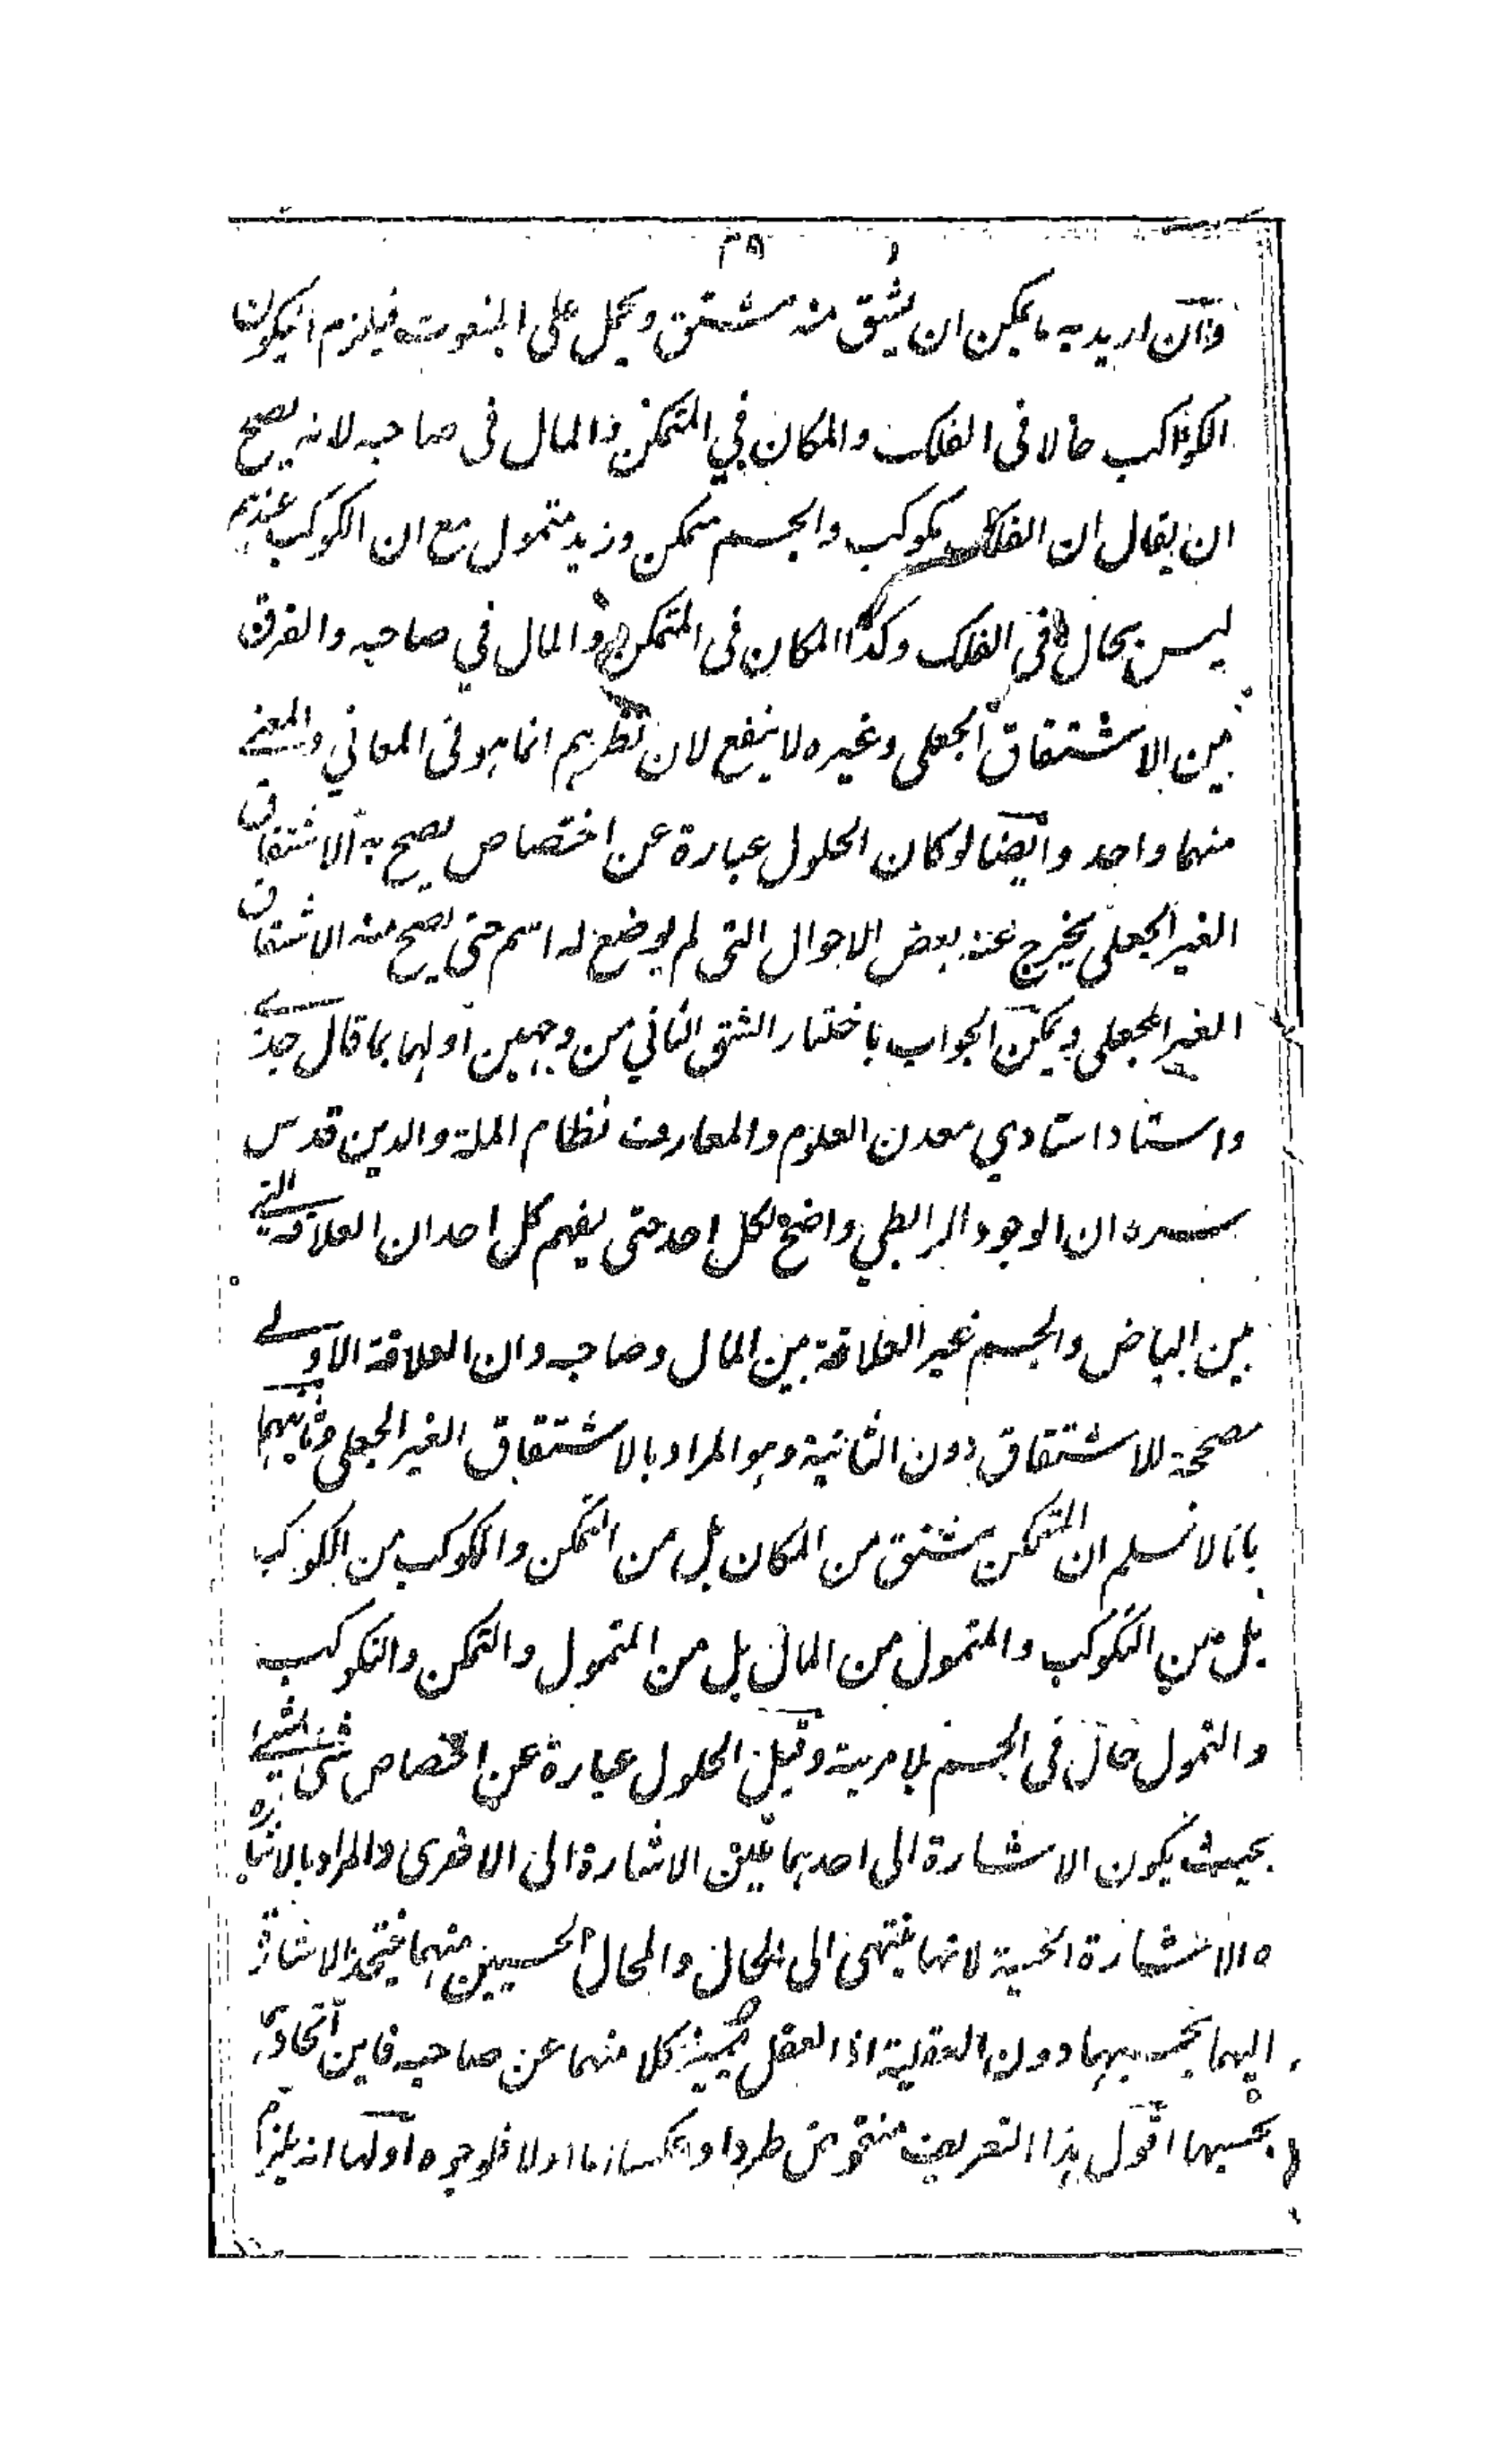 ٣٥
وان اريد به ما يمكن ان يشتق منه مشتق ويحمل على المنعوت فيلزم ان يكون
الكواكب حالا فى الفلك والمكان في المتمكن والمال فى صاحبه لانه يصح
ان يقال ان الفلك مكوكب والجسم متمكن وزيد متمول مع ان الكوكب عندهم
ليس بحال في الفلك وكذا المكان فى المتمكن والمال في صاحبه والفرق
بين الاشتقاق الجعلى وغيره لا ينفع لان نظرهم انما هو فى المعاني والمعنے
منهما واحد وايضا لو كان الحلول عبارة عن اختصاص يصح به الاشتقاق
الغير الجعلى يخرج عنه بعض الاحوال التى لم يوضع له اسم حتى يصح منه الاشتقاق
الغير الجعلى ويمكن الجواب باختيار الشق الثاني من وجهين اولهما بما قال جدے
واستاد استادي معدن العلوم والمعارف نظام الملة والدين قدس
سره ان الوجود الرابطي واضح لكل احد حتى يفهم كل احد ان العلاقة التے
بين البياض والجسم غير العلاقة بين المال وصاحبه وان العلاقة الاولے
مصححة للاشتقاق دون الثانية وهو المراد بالاشتقاق الغير الجعلى وثانيهما
بانا لا نسلم ان المتمكن مشتق من المكان بل من التمكن والمكوكب من الكوكب
بل من التكوكب والمتمول من المال بل من التمول والتمكن والتكوكب
والتمول حال فى الجسم بلا مرية وقيل الحلول عبارة عن اختصاص شئ بشئے
بحيث يكون الاشارة الى احدهما عين الاشارة الى الاخرى والمراد بالاشارة
الاشارة الحسية لانها ينتهى الى الحال والمحال الحسيين منهما فيتحد الاشارة
اليهما بحسبهما دون العقلية اذ العقل يميز كلا منهما عن صاحبه فاين اتحادها
بحسبهما اقول هذا التعريف منقوض طردا وعكسا اما اولا فلوجوه اولها انه يلزم